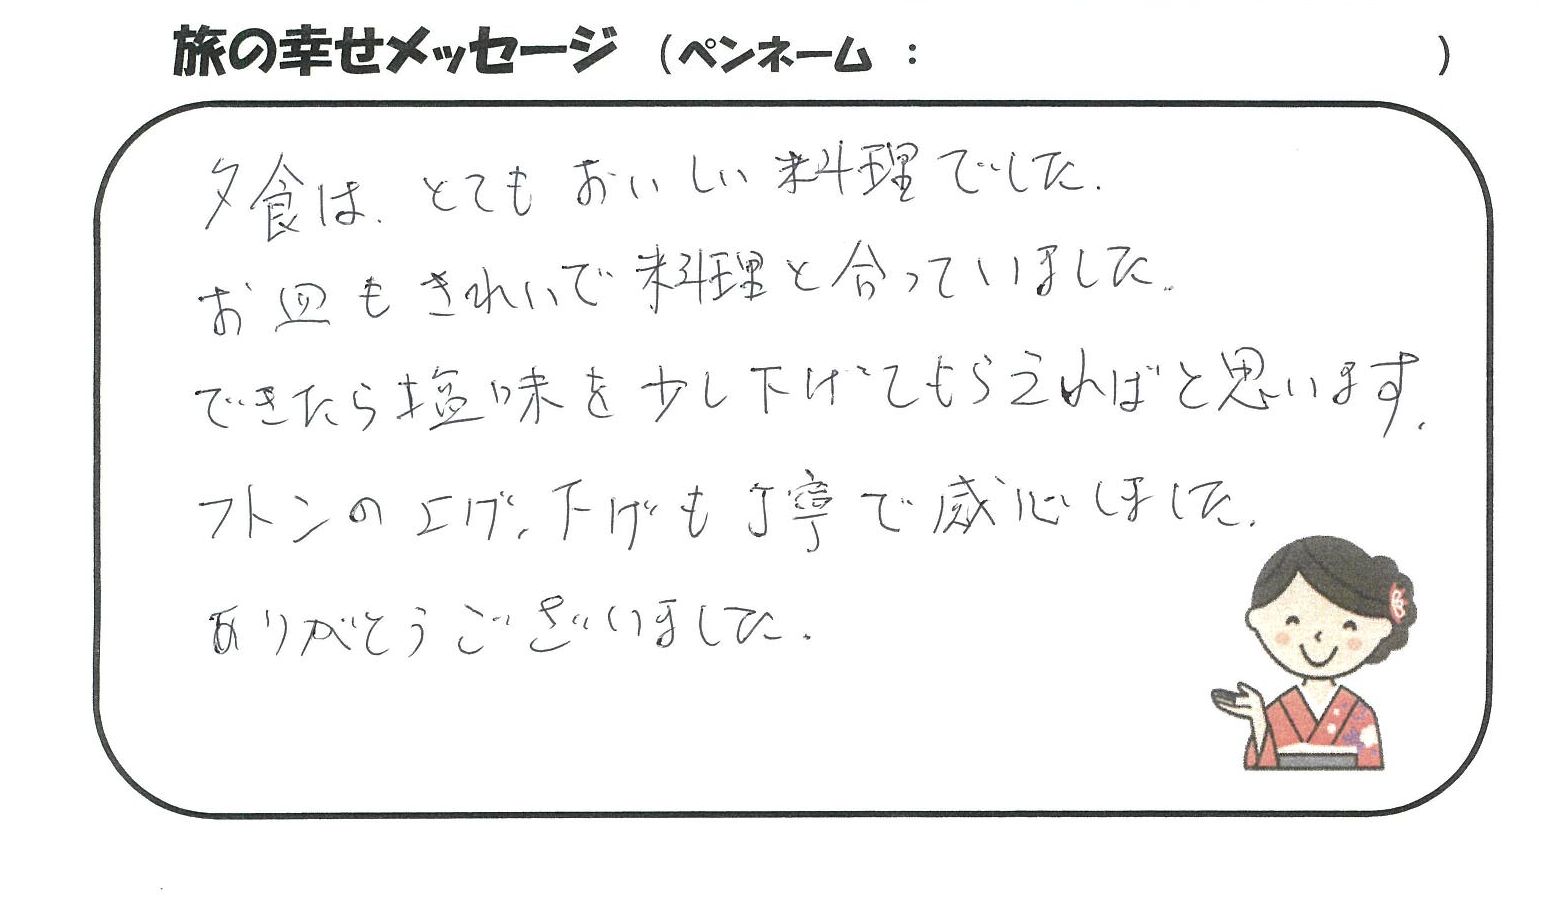 旅の幸せメッセージ （ペンネーム ： ）
夕食は、とてもおいしい料理でした.
お皿もきれいで料理と合っていました.
できたら塩味を少し下げてもらえればと思います.
フトンの上げ、下げも丁寧で感心しました.
ありがとうございました.